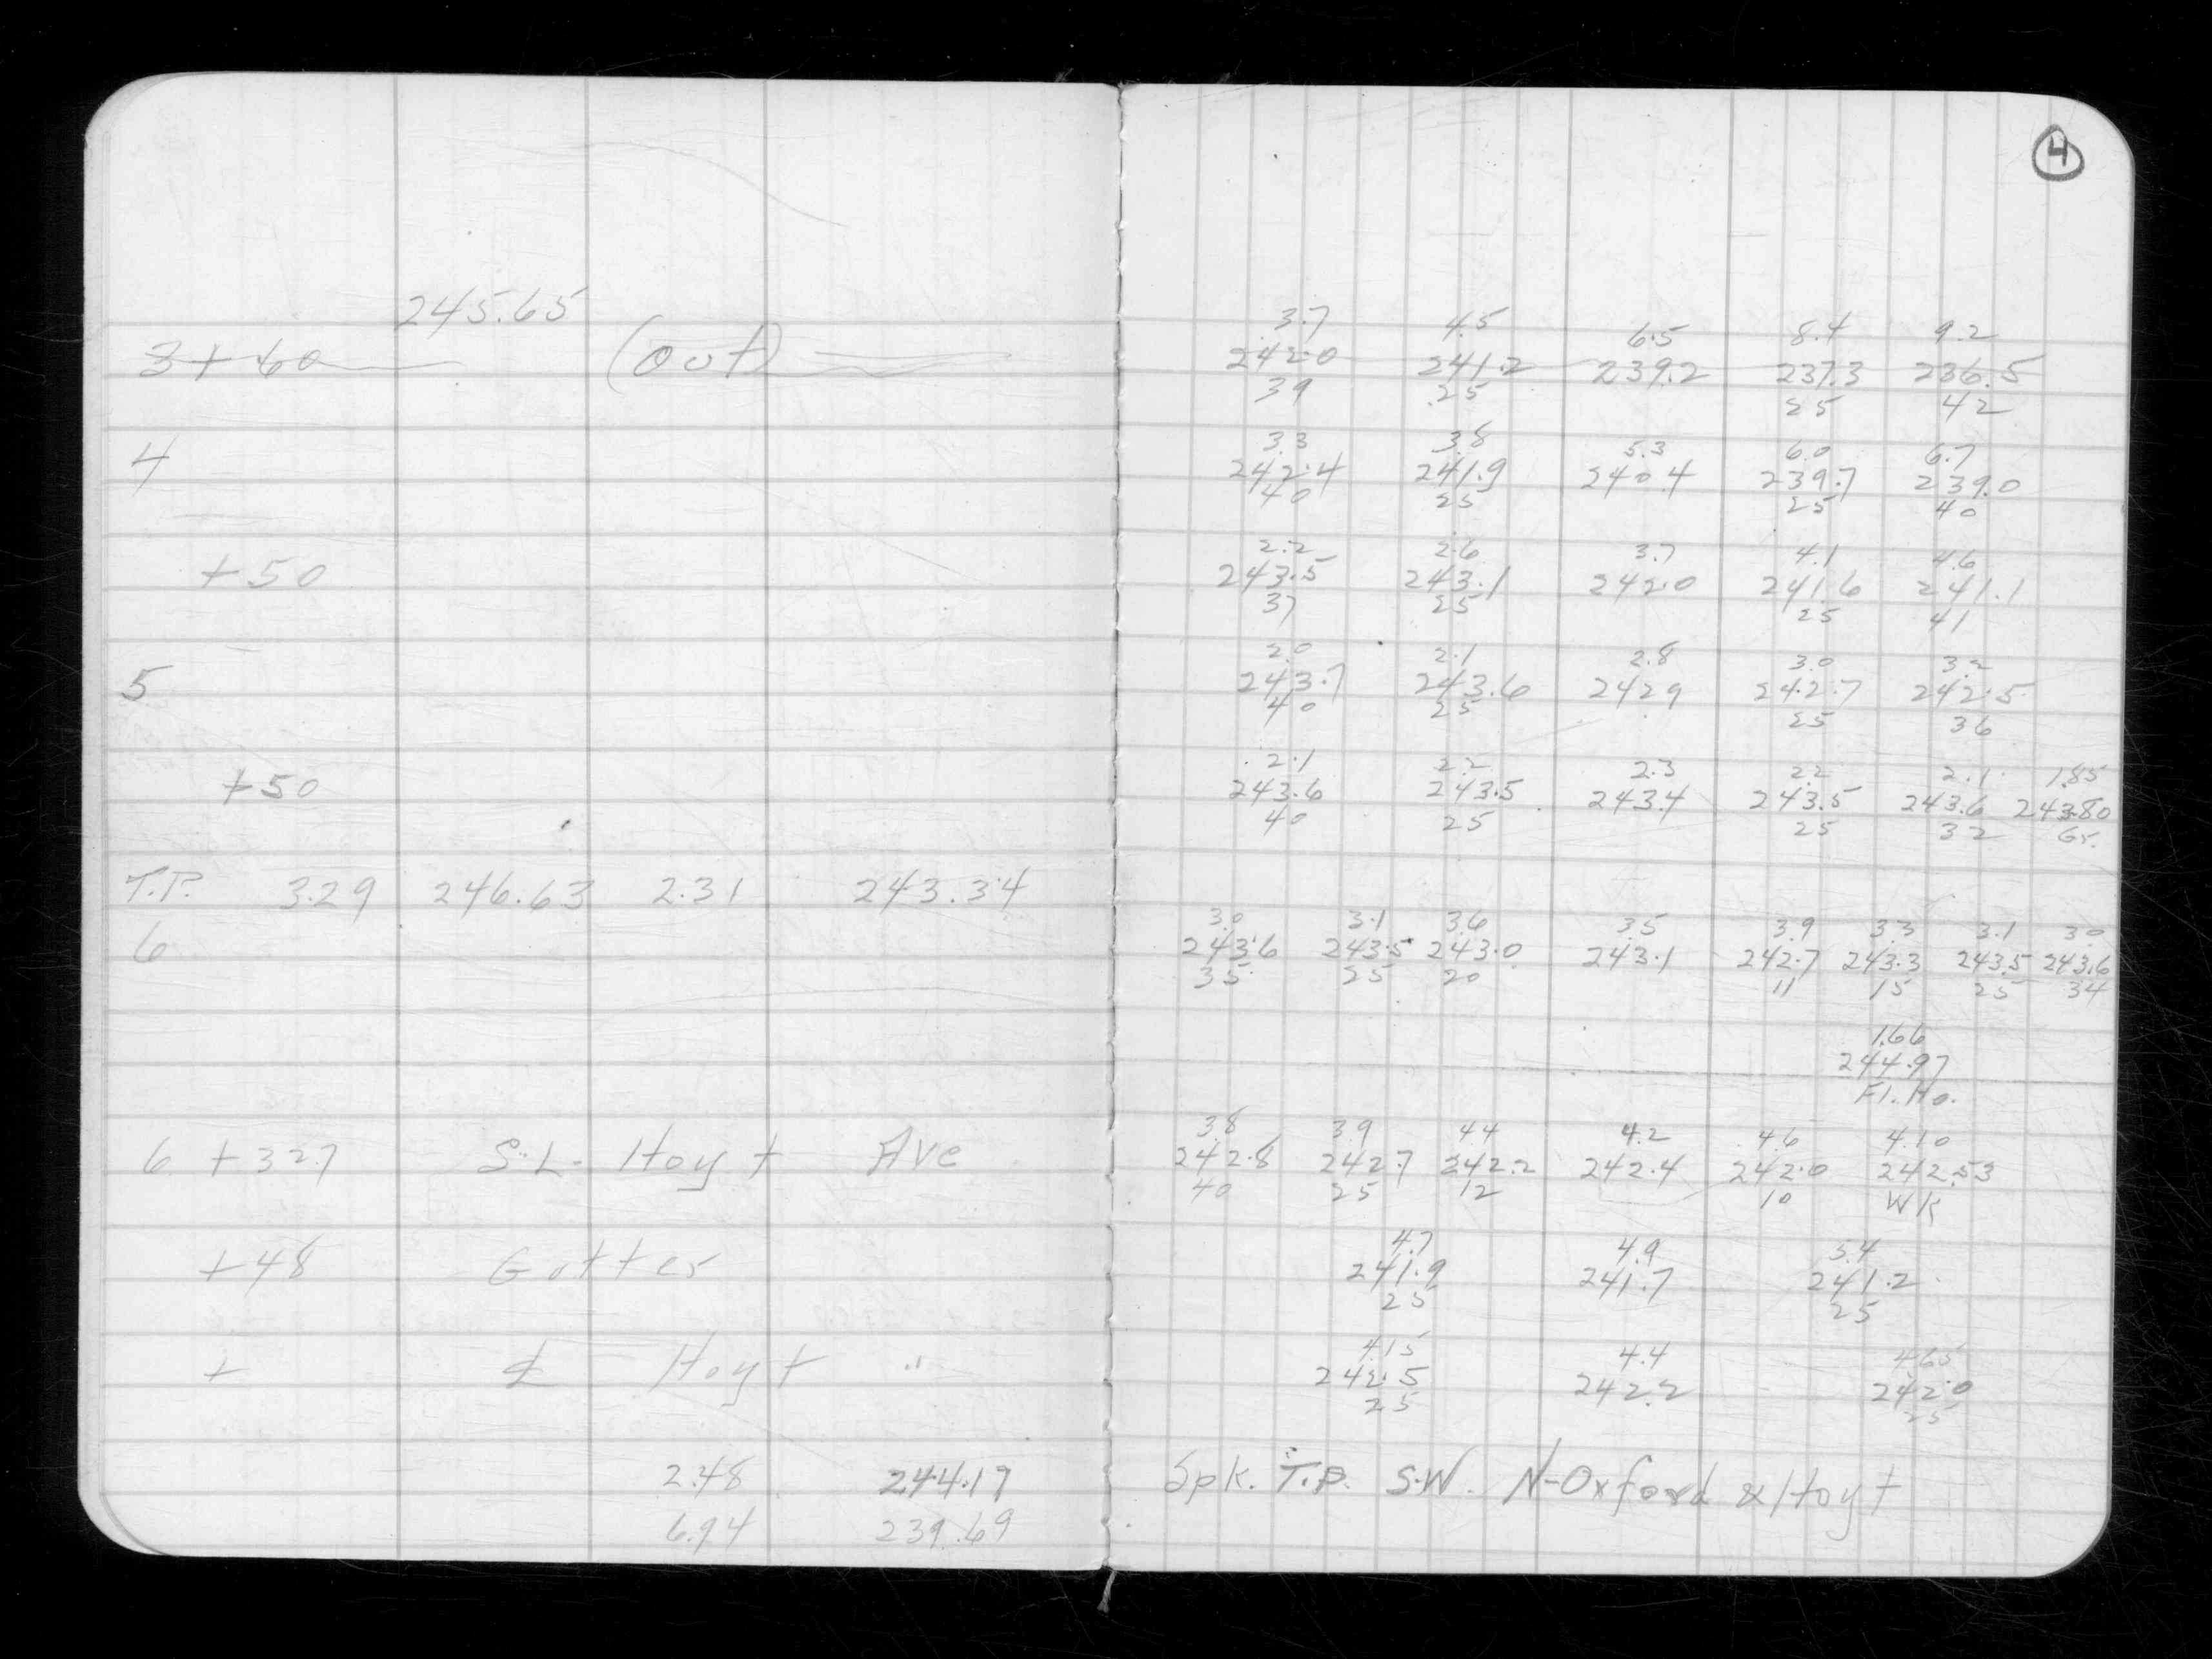 4
245.65
3+60 (out)
3.7 4.5 6.5 8.4 9.2
242.0 241.2 239.2 237.3 236.5
39 25 25 42
4
3.3 3.8 5.3 6.0 6.7
242.4 241.9 240.4 239.7 239.0
40 25 25 40
+50
2.2 2.6 3.7 4.1 4.6
243.5 243.1 242.0 241.6 241.1
37 25 25 41
5
2.0 2.1 2.8 3.0 3.2
243.7 243.6 242.9 242.7 242.5
40 25 25 36
+50
2.1 2.2 2.3 2.2 2.1 1.85
243.6 243.5 243.4 243.5 243.6 243.80
40 25 25 32 Gr.
T.P. 3.29 246.63 2.31 243.34
6
3.0 3.1 3.6 3.5 3.9 3.3 3.1 3.0
243.6 243.5 243.0 243.1 242.7 243.3 243.5 243.6
35 25 20 11 15 25 34
1.66
244.97
Fl. Ho.
6 +32.7 S.L. Hoyt Ave
3.8 3.9 4.4 4.2 4.6 4.10
242.8 242.7 242.2 242.4 242.0 242.53
40 25 12 10 WK
+48 Gutter
4.7 4.9 5.4
241.9 241.7 241.2
25 25
+ ℄ Hoyt "
4.15 4.4 4.65
242.5 242.2 242.0
25 25
2.48 244.17 Spk. T.P. S.W. N-Oxford & Hoyt
6.94 239.69